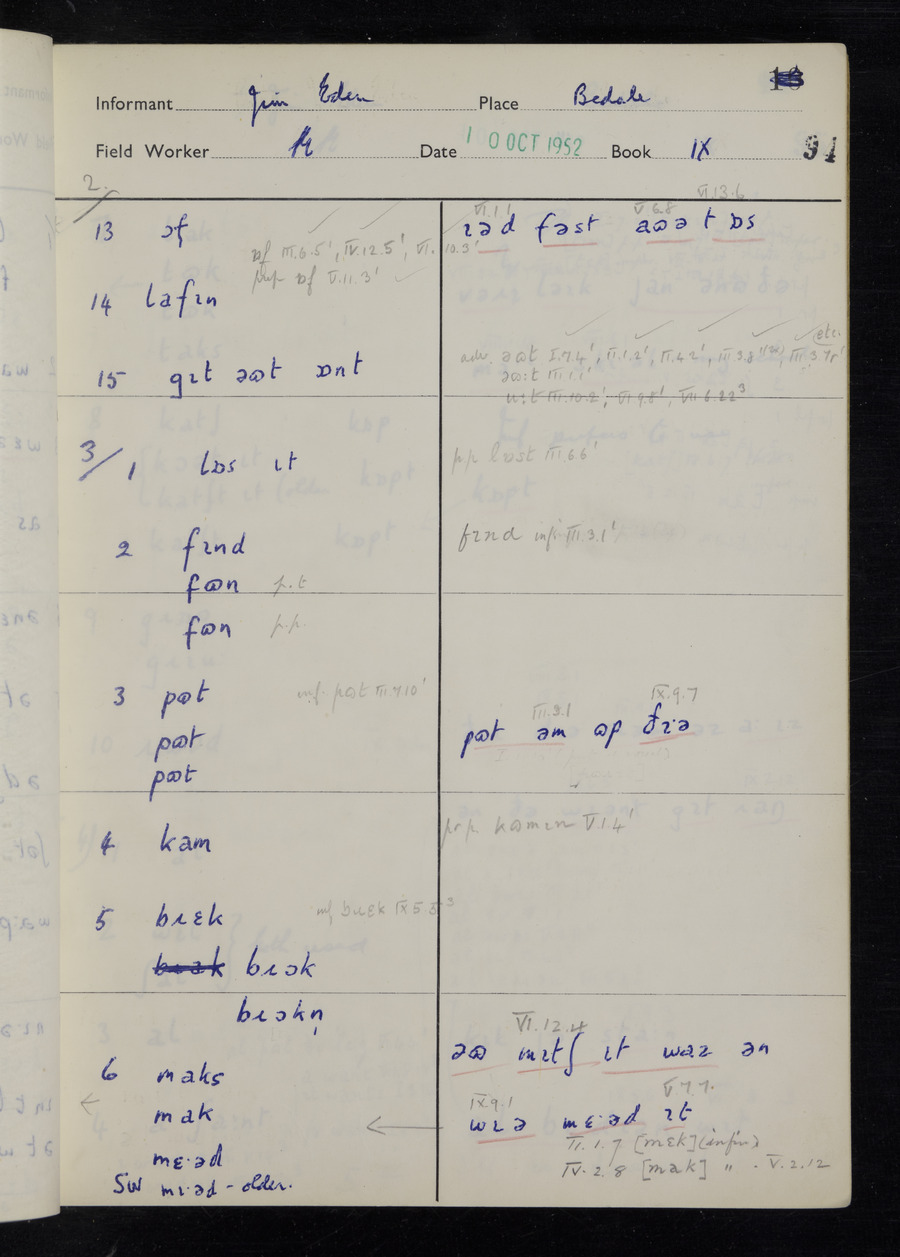 Informant Jim Eden Place Bedale
Field Worker Date 10 OCT 1952 Book IX 94
2.
13 ɔf
ɒf III.6.5', IV.12.5', VI.10.3'
prp ɒf V.11.3'
VI.1.1 V.6.8 VI.13.6
fast
14 lafɪn
15 gɪt əʊt ɒnt
adv. əʊt I.7.4', II.1.2', II.4.2', III.3.8 III.3.7 etc.
əʊ:t III.1.1'
u:t III.10.2', VI.9.8', VII.6.22³
3/1 lɒs ɪt
pp lɒst III.6.6'
2 fɪnd
fɪnd inf. III.3.1'
fʊn p.t
fʊn p.p.
3 pʊt inf. pʊt III.7.10'
pʊt
pʊt
III.3.1 IX.9.7
pʊt əm ʊp ðɪə
4 kam
prp kʊmɪn V.1.4'
5 brɛk inf brɛk IX.5.5³
brɔk
brɔkn̩
VI.12.4
əʊ mɪtʃ ɪt waz ən
6 maks
mak
IX.9.1 V.7.7.
wɪə mɛ·əd ɪt
II.1.7 [mɛk] (infin)
IV.2.8 [mak] " . V.2.12
mɛ·əd
SW mɪ·əd - older.